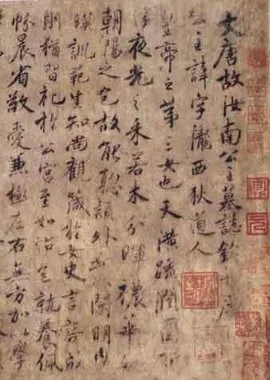 大唐故汝南公主墓誌銘并序
公主諱字隴西狄道人
皇帝之第三女也天潢疏潤圓折
浮夜光之采若木分暉穠華
朝陽之色故能聰穎外發閑明內
暎訓範生知尚觀箴於女史言容成
則猶習禮於公宮至如怡色就養佩
帨晨省敬愛兼極左右無方加以學